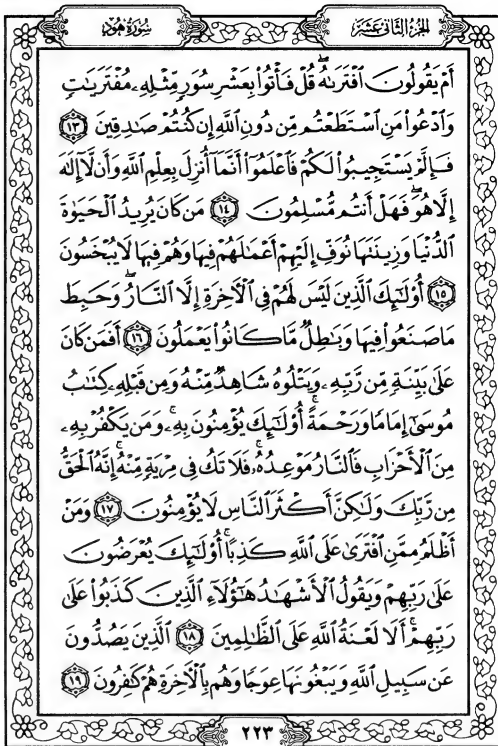 سُورَةُ هُودٍ
الجُزْءُ الثَّانِي عَشَرَ
أَمْ يَقُولُونَ ٱفْتَرَىٰهُۖ قُلْ فَأْتُوا۟ بِعَشْرِ سُوَرٍ مِّثْلِهِۦ مُفْتَرَيَٰتٍ
وَٱدْعُوا۟ مَنِ ٱسْتَطَعْتُم مِّن دُونِ ٱللَّهِ إِن كُنتُمْ صَٰدِقِينَ ١٣
فَإِلَّمْ يَسْتَجِيبُوا۟ لَكُمْ فَٱعْلَمُوٓا۟ أَنَّمَآ أُنزِلَ بِعِلْمِ ٱللَّهِ وَأَن لَّآ إِلَٰهَ
إِلَّا هُوَۖ فَهَلْ أَنتُم مُّسْلِمُونَ ١٤ مَن كَانَ يُرِيدُ ٱلْحَيَوٰةَ
ٱلدُّنْيَا وَزِينَتَهَا نُوَفِّ إِلَيْهِمْ أَعْمَٰلَهُمْ فِيهَا وَهُمْ فِيهَا لَا يُبْخَسُونَ
١٥ أُو۟لَٰٓئِكَ ٱلَّذِينَ لَيْسَ لَهُمْ فِى ٱلْءَاخِرَةِ إِلَّا ٱلنَّارُۖ وَحَبِطَ
مَا صَنَعُوا۟ فِيهَا وَبَٰطِلٌ مَّا كَانُوا۟ يَعْمَلُونَ ١٦ أَفَمَن كَانَ
عَلَىٰ بَيِّنَةٍ مِّن رَّبِّهِۦ وَيَتْلُوهُ شَاهِدٌ مِّنْهُ وَمِن قَبْلِهِۦ كِتَٰبُ
مُوسَىٰٓ إِمَامًا وَرَحْمَةًۚ أُو۟لَٰٓئِكَ يُؤْمِنُونَ بِهِۦۚ وَمَن يَكْفُرْ بِهِۦ
مِنَ ٱلْأَحْزَابِ فَٱلنَّارُ مَوْعِدُهُۥۚ فَلَا تَكُ فِى مِرْيَةٍ مِّنْهُۚ إِنَّهُ ٱلْحَقُّ
مِن رَّبِّكَ وَلَٰكِنَّ أَكْثَرَ ٱلنَّاسِ لَا يُؤْمِنُونَ ١٧ وَمَنْ
أَظْلَمُ مِمَّنِ ٱفْتَرَىٰ عَلَى ٱللَّهِ كَذِبًاۚ أُو۟لَٰٓئِكَ يُعْرَضُونَ
عَلَىٰ رَبِّهِمْ وَيَقُولُ ٱلْأَشْهَٰدُ هَٰٓؤُلَآءِ ٱلَّذِينَ كَذَبُوا۟ عَلَىٰ
رَبِّهِمْۚ أَلَا لَعْنَةُ ٱللَّهِ عَلَى ٱلظَّٰلِمِينَ ١٨ ٱلَّذِينَ يَصُدُّونَ
عَن سَبِيلِ ٱللَّهِ وَيَبْغُونَهَا عِوَجًا وَهُم بِٱلْءَاخِرَةِ هُمْ كَٰفِرُونَ ١٩
٢٢٣